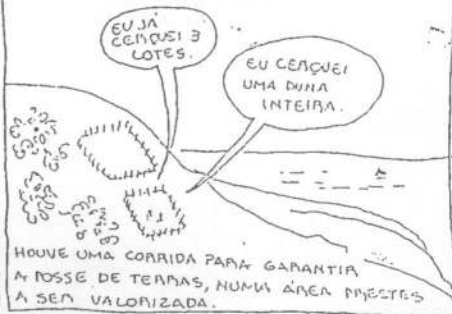 EU JÁ
CERQUEI 3
LOTES.
EU CERQUEI
UMA DUNA
INTEIRA.
HOUVE UMA CORRIDA PARA GARANTIR
A POSSE DE TERRAS, NUMA ÁREA PRESTES
A SER VALORIZADA.